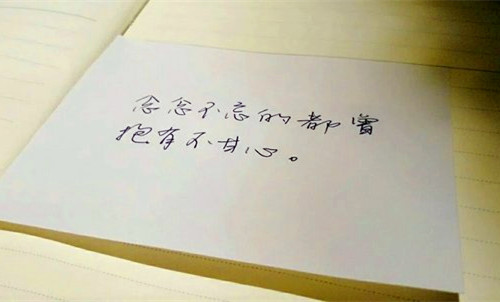 念念不忘的都曾
抱有不甘心。